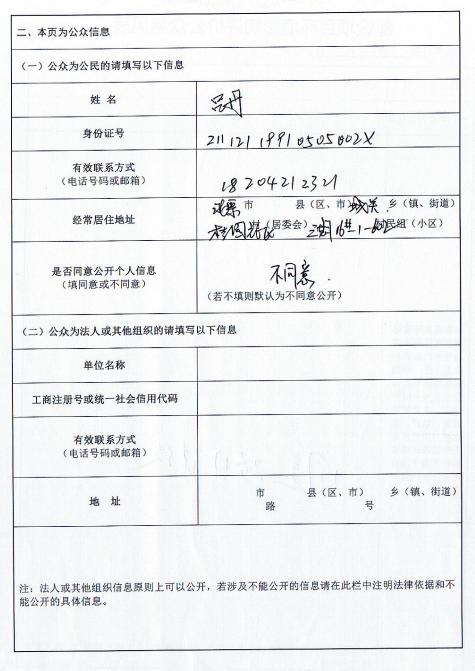 二、本页为公众信息
（一）公众为公民的请填写以下信息
姓 名 吕丹
身份证号 21112119910505002X
有效联系方式
（电话号码或邮箱） 18204212321
经常居住地址 市 县（区、市）城关 乡（镇、街道）
村（居委会） 村民组（小区）
是否同意公开个人信息
（填同意或不同意） 不同意.
（若不填则默认为不同意公开）
（二）公众为法人或其他组织的请填写以下信息
单位名称
工商注册号或统一社会信用代码
有效联系方式
（电话号码或邮箱）
地 址 市 县（区、市） 乡（镇、街道）
路 号
注：法人或其他组织信息原则上可以公开，若涉及不能公开的信息请在此栏中注明法律依据和不
能公开的具体信息。